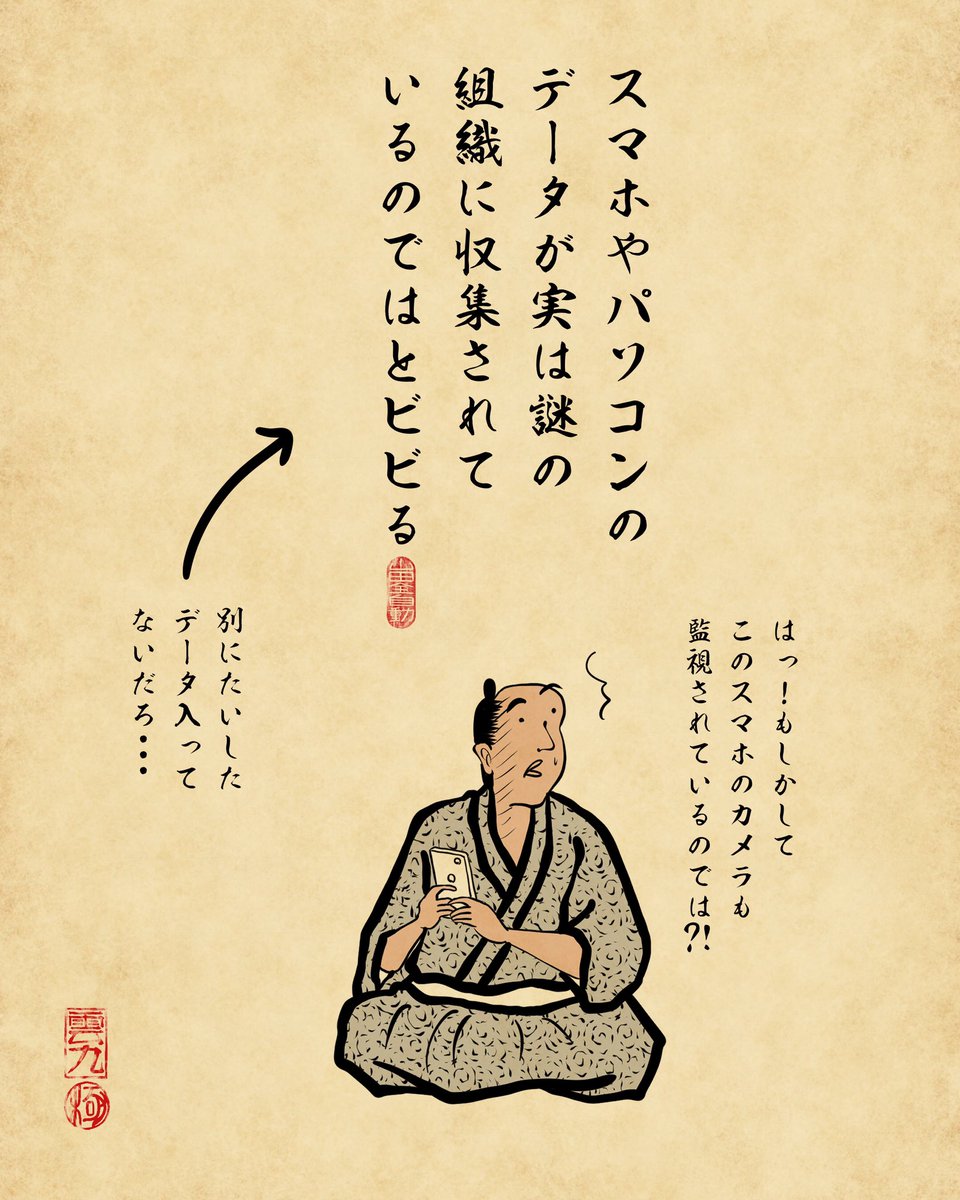 スマホやパソコンの
データが実は謎の
組織に収集されて
いるのではとビビる
はっ！もしかして
このスマホのカメラも
監視されているのでは?!
別にたいした
データ入って
ないだろ・・・